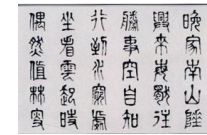 晚家南山陲
興來每獨往
勝事空自知
行到水窮處
坐看雲起時
偶然值林叟